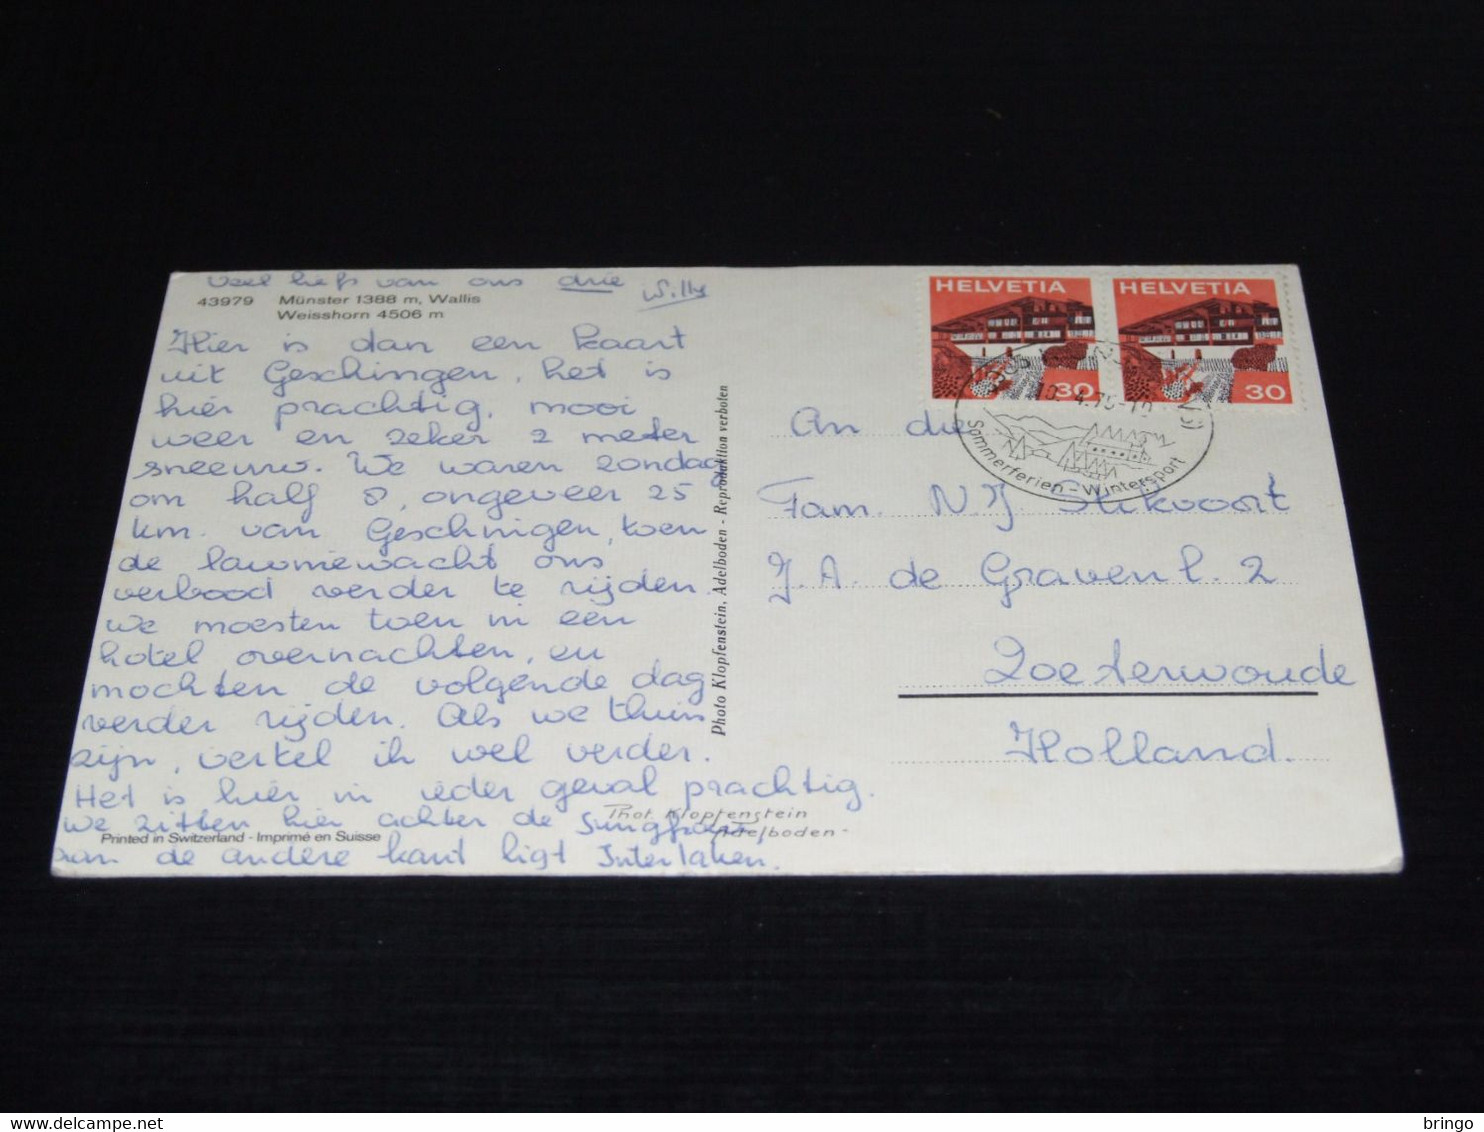 Veel liefs van ons drie
Willy
43979 Münster 1388 m, Wallis
Weisshorn 4506 m
Hier is dan een kaart
uit Geschingen, het is
hier prachtig, mooi
weer en zeker 2 meter
sneeuw. We waren zondag
om half 8, ongeveer 25
km. van Geschingen, toen
de lawinewacht ons
verbood verder te rijden.
We moesten toen in een
hotel overnachten, en
mochten de volgende dag
verder rijden. Als we thuis
zijn, vertel ik wel verder.
Het is hier in ieder geval prachtig.
We zitten hier achter de Jungfrau
aan de andere kant ligt Interlaken.
Printed in Switzerland - Imprimé en Suisse
Phot. Klopfenstein
Adelboden-
Photo Klopfenstein, Adelboden - Reproduktion verboten
HELVETIA
30
HELVETIA
30
Sommerferien - Wintersport
An die
Fam. N J Stikvoort
J. A. de Gravenl. 2
Zoeterwoude
Holland.
bringo